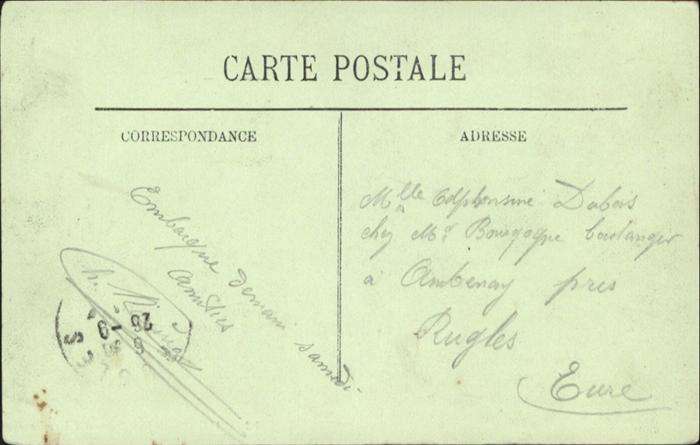 CARTE POSTALE
CORRESPONDANCE
Embarque demain samedi
amitiés
ADRESSE
Mlle Alphonsine Dubois
chez Mr Bourgogne boulanger
à Ambenay près
Rugles
Eure
26 -9